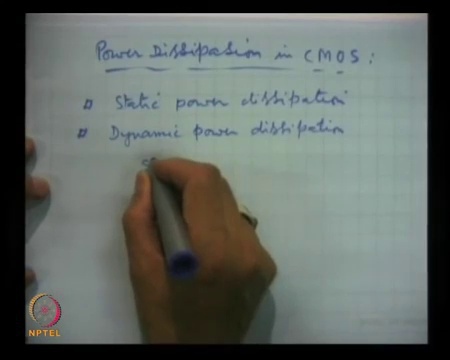 Power Dissipation in CMOS:
Static power dissipation
Dynamic power dissipation
NPTEL